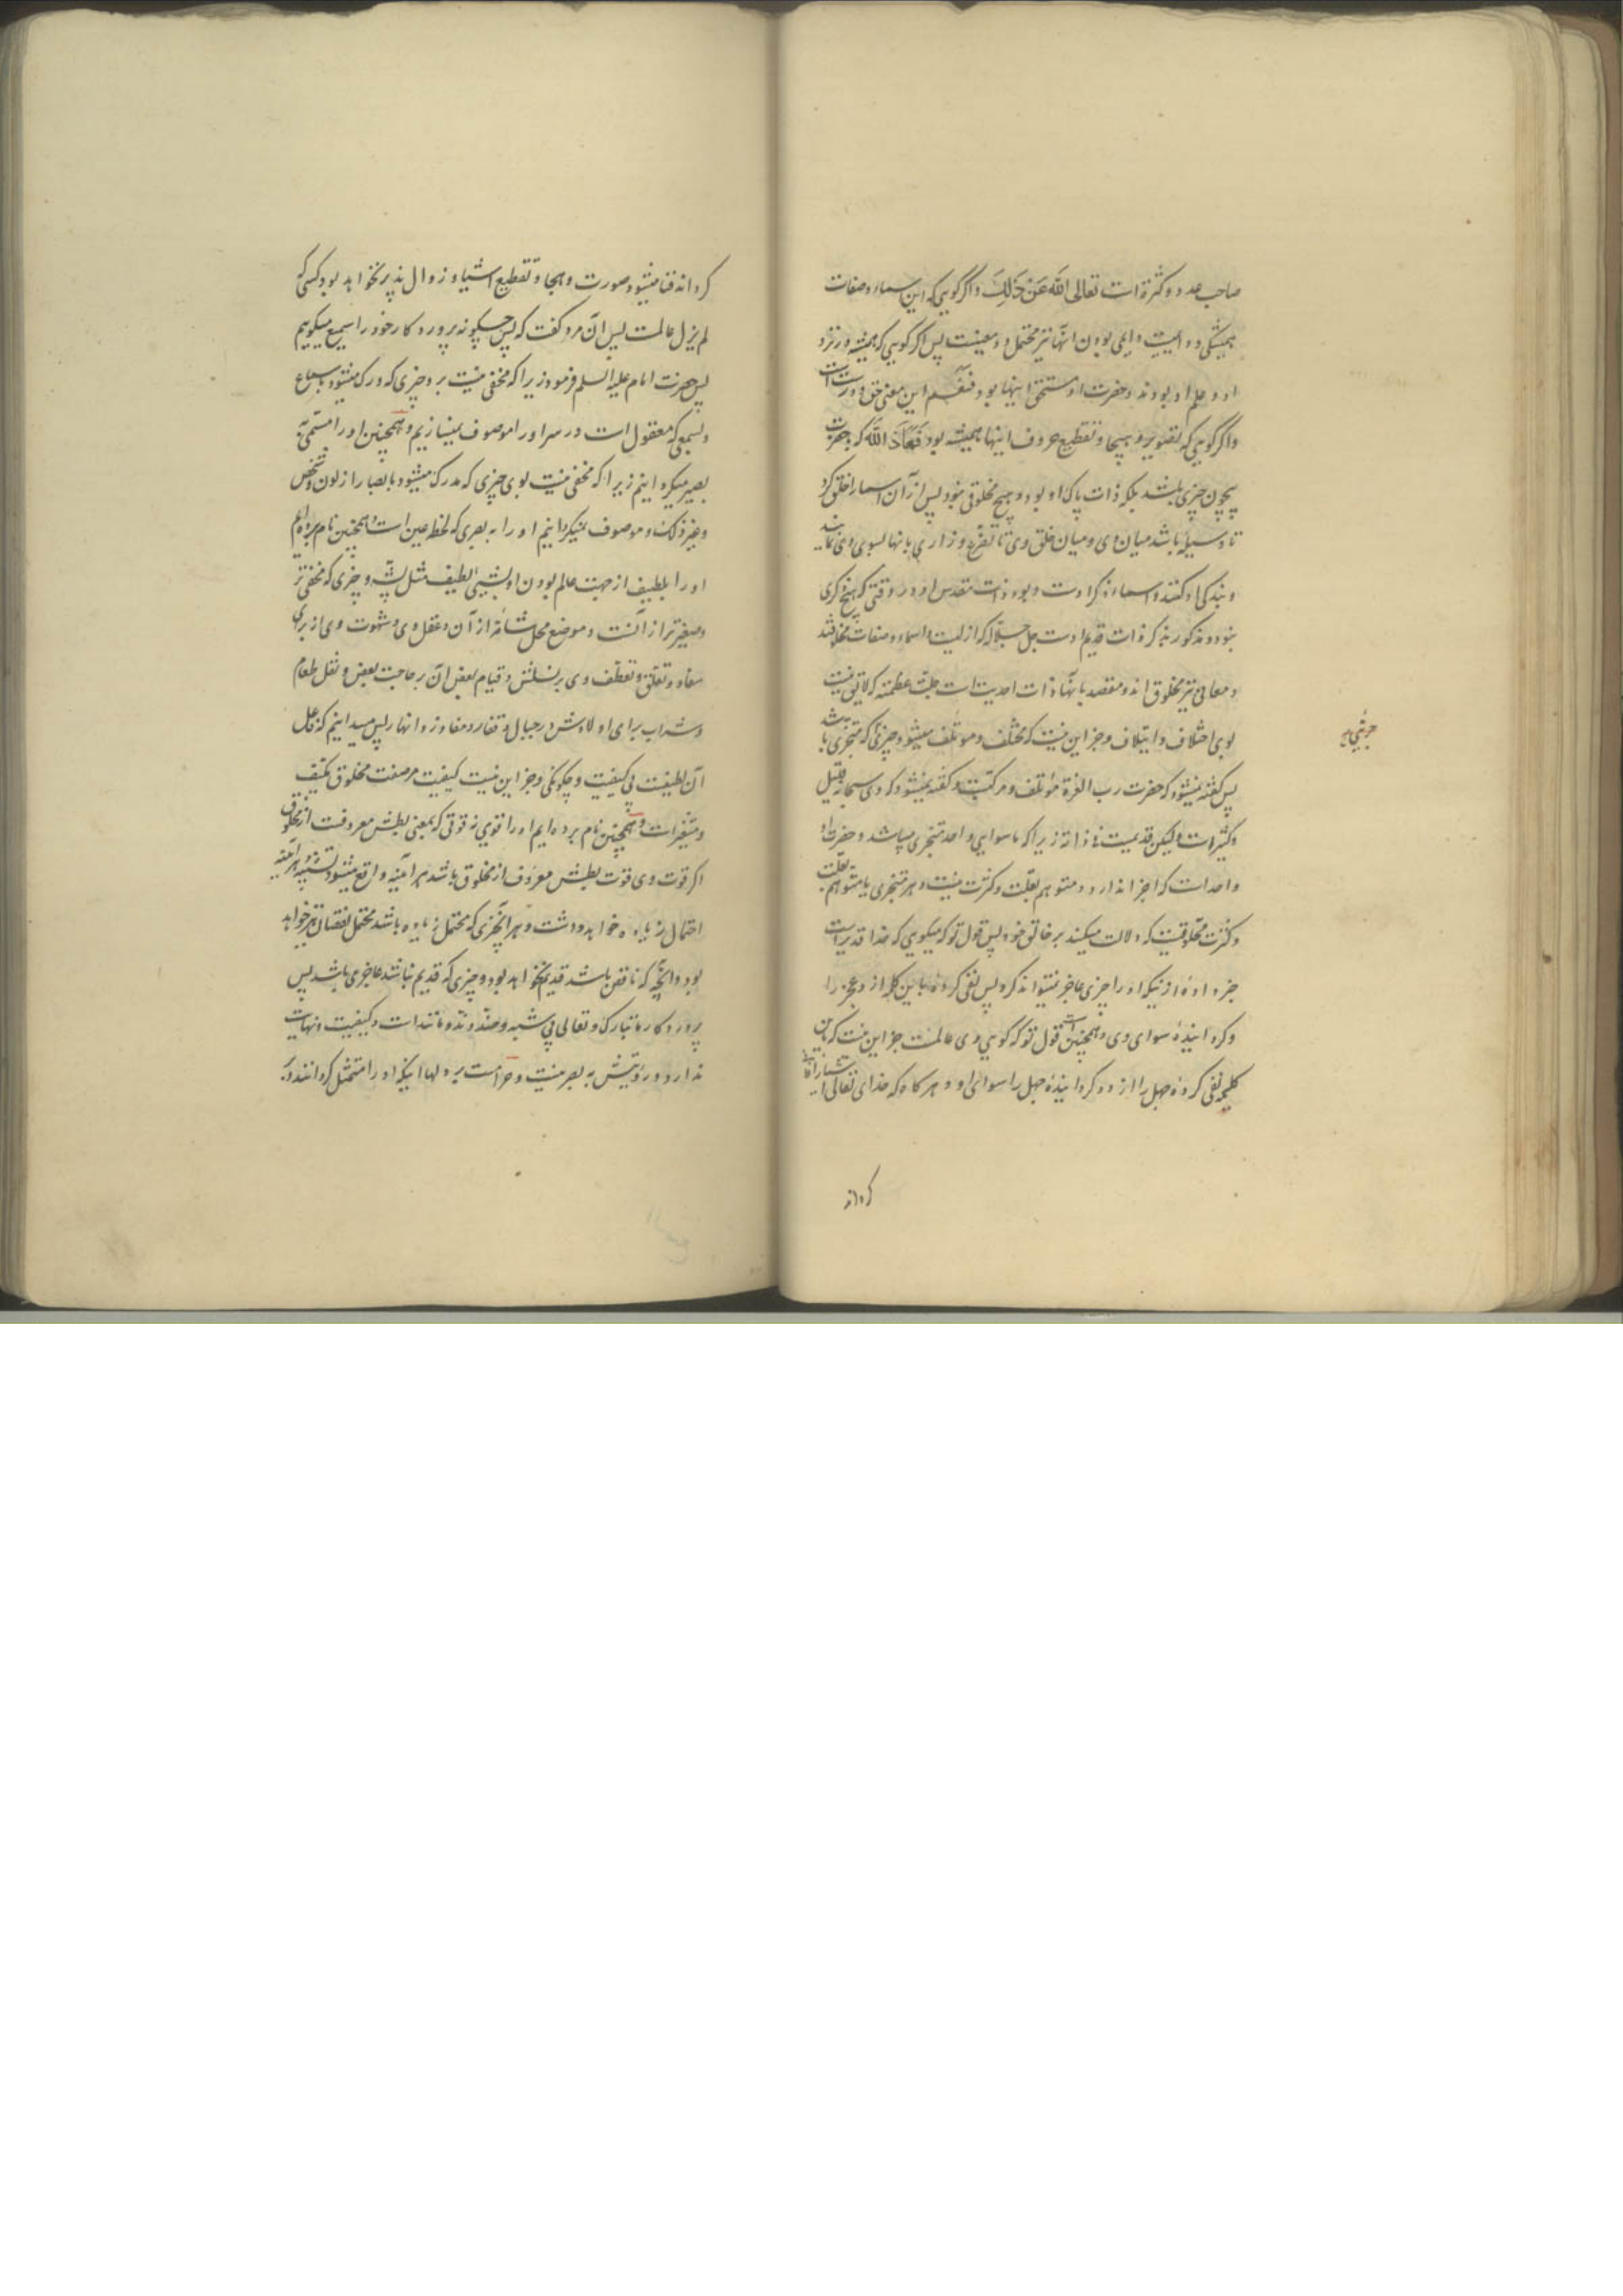 صاحب عدد و کثرة است تعالی اللّه عَنْ ذَلِكَ و اگر گویی که این اسماء و صفات
همیشگی و دایمی بودن انها نیز محتمل دو معنیست پس اگر گویی که همیشه در نزد
او و علم او بودند و حضرت او مستحق اینها بود فنعم این معنی حق و درست است
و اگر گویی که تصویر و هجا و تقطیع حروف اینها همیشه بود فَمَعَاذَ اللّه که حضرت
بیچون چیزی باشد بلکه ذات پاک او بود و هیچ مخلوقی نبود پس از آن اسما را خلق کرد
تا وسیله باشد میان وی و میان خلق وی تا تضرع و زاری بانها بسوی وی نمایند
و بندگی او کنند و اسماء ذکر اوست و بود ذات مقدس او در وقتی که هیچ ذکری
نبود و مذکور بذکر ذات قدیم اوست جل جلاله که ازلیست و اسماء و صفات مخلوقند
و معانی نیز مخلوق اند و مقصد بانها ذات احدیت است جلت عظمته که لایق نیست
بوی اختلاف و ایتلاف و جز این نیست که مختلف و موتلف میشود چیزی که متجزی باشد
پس گفته نمیشود که حضرت رب العزة موتلف و مرکبست و گفته نمیشود که وی سبحانه قلیل
و کثیر است ولیکن قدیمست فی ذاته زیرا که ماسوایی واحد متجزی میباشد و حضرت او
واحد است که اجزا ندارد و متوهم بقلت و کثرت نیست و هر متجزی یا متوهم بقلت
و کثرت مخلوقیست که دلالت میکند بر خالق خود پس قول تو که میگویی که خدا قدیر است
خبر داده از نیکه او را چیزی عاجز نمیتواند کرد پس نفی کرده باین کلمه از و عجز را
و گردانیده سوای وی و همچنین است قول تو که گویی وی عالمست جز این نیست که باین
کلمه نفی کرده جهل را از و و گردانیده جهل را سوای او و هر گاه که خدای تعالی اشیا را فانی
جزئی
گرداند
گرداند فنا میشود صورت و هجا و تقطیع اشیا و زوال پذیر نخواهد بود کسی که
لم یزل عالمست پس آن مرد گفت که پس چگونه پروردگار خود را سمیع میگوییم
پس حضرت امام علیه السلم فرمود زیرا که مخفی نیست بر و چیزی که درک میشود باسماع
و بسمعی که معقول است در سر او را موصوف نمیسازیم و همچنین او را مسمی به
بصیر میگردانیم زیرا که مخفی نیست بوی چیزی که مدرک میشود بابصار از لون و شخص
و غیر ذلک و موصوف نمیگردانیم او را به بصری که لحظ عین است و همچنین نام برده ایم
او را بلطیف از جهت عالم بودن او بشیئ لطیف مثل پشه و چیزی که مخفی تر
و صغیرتر از آنست و موضع محل شانه از آن و عقل وی و شهوت وی از برای
سفاد و تعلق و تعطف وی بر نسلش و قیام بعض آن بر حاجت بعض و نقل طعام
و شراب برای اولادش در جبال و قفار و مفاوز و انهار پس میدانیم که فاعل
آن لطیفست بی کیفیت و چگونگی و جز این نیست کیفیت مر صفت مخلوق مکیف
و متغیر است و همچنین نام برده ایم او را قوی نه قوتی که بمعنی بطش معروفست از مخلوق
اگر قوت وی قوت بطش معروف از مخلوق باشد هر آینه واقع میشود تشبیه و هر آینه
احتمال زیاده خواهد داشت و هر آنچیزی که محتمل زیاده باشد محتمل نقصان نیز خواهد
بود و آنچه که ناقص باشد قدیم نخواهد بود و چیزی که قدیم نباشد عاجزی باشد پس
پروردگار ما تبارک و تعالی بی شبه و ضد و ند و مانند است و کیفیت و نهایت
ندارد و رؤیتش به بصر نیست و حرامست بر دلها اینکه او را متمثل گردانند و بر